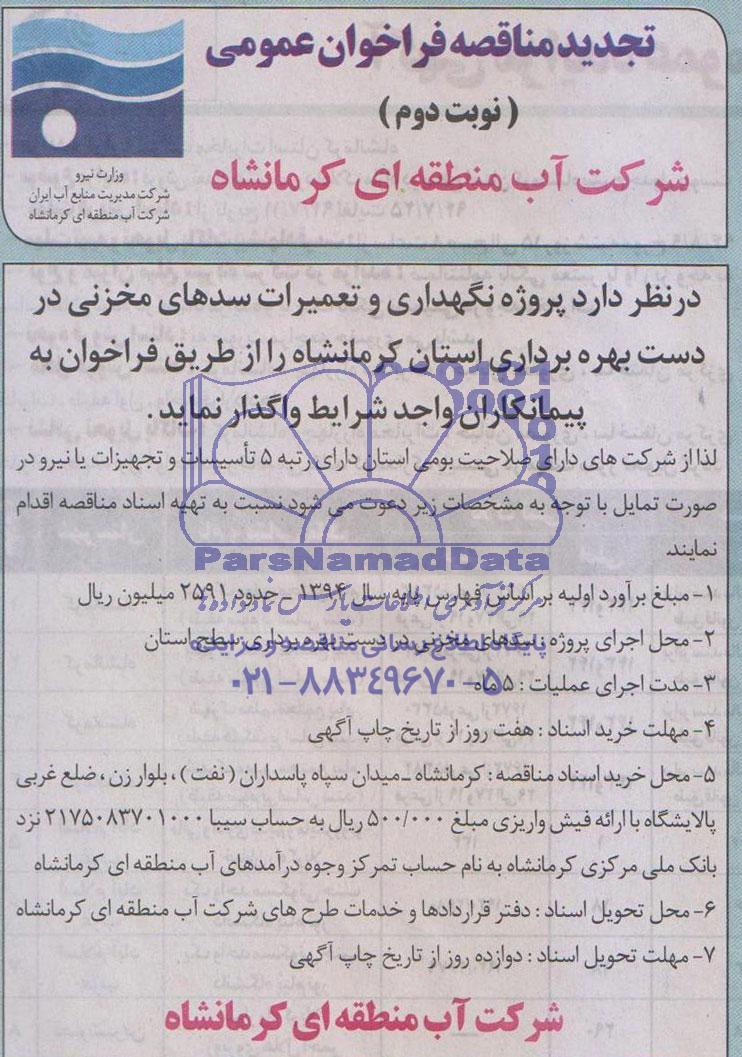 تجدید مناقصه فراخوان عمومی
(نوبت دوم)
شرکت آب منطقه ای کرمانشاه
وزارت نیرو
شرکت مدیریت منابع آب ایران
شرکت آب منطقه ای کرمانشاه
درنظر دارد پروژه نگهداری و تعمیرات سدهای مخزنی در
دست بهره برداری استان کرمانشاه را از طریق فراخوان به
پیمانکاران واحد شرایط واگذار نماید.
لذا از شرکت های دارای صلاحیت بومی استان دارای رتبه ۵ تأسیسات و تجهیزات یا نیرو در
صورت تمایل با توجه به مشخصات زیر دعوت می شود نسبت به تهیه اسناد مناقصه اقدام
نمایند.
ParsNamadData
۱- مبلغ برآورد اولیه بر اساس فهارس پایه سال ۱۳۹۴ حدود ۲۵۹۱ میلیون ریال
۲- محل اجرای پروژه : سدهای مخزنی در دست بهره برداری سطح استان
۳- مدت اجرای عملیات : ۵ ماه
۰۲۱-۸۸۳۴۹۶۷۰-۵
۴- مهلت خرید اسناد : هفت روز از تاریخ چاپ آگهی
۵- محل خرید اسناد مناقصه : کرمانشاه - میدان سپاه پاسداران (نفت)، بلوار زن، ضلع غربی
پالایشگاه با ارائه فیش واریزی مبلغ ۵۰۰/۰۰۰ ریال به حساب سیبا ۲۱۷۵۰۸۳۷۰۱۰۰۰ نزد
بانک ملی مرکزی کرمانشاه به نام حساب تمرکز وجوه درآمدهای آب منطقه ای کرمانشاه
۶- محل تحویل اسناد : دفتر قراردادها و خدمات طرح های شرکت آب منطقه ای کرمانشاه
۷- مهلت تحویل اسناد : دوازده روز از تاریخ چاپ آگهی
شرکت آب منطقه ای کرمانشاه